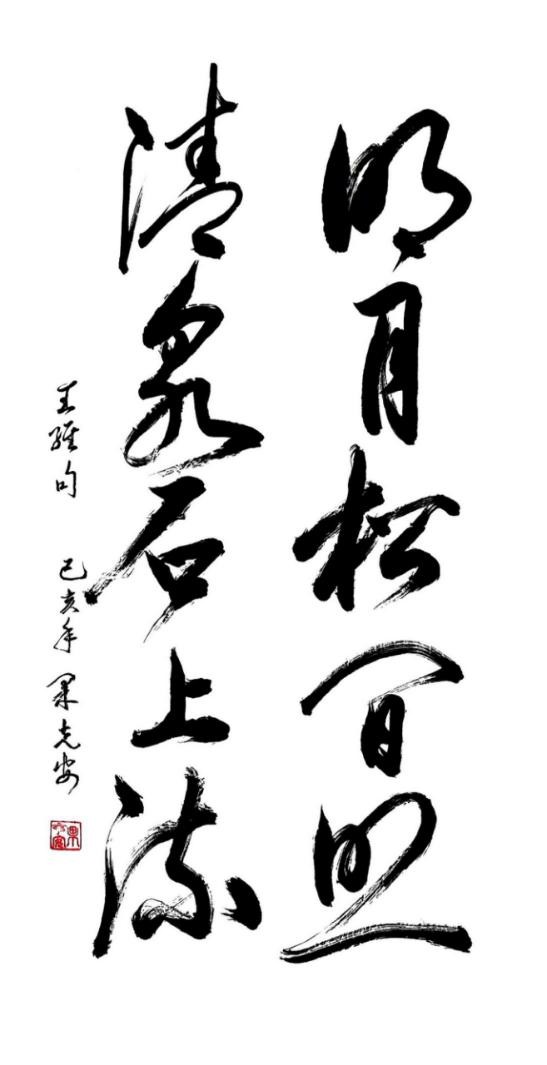 明月松间照
清泉石上流
王维句 己亥年 果克安